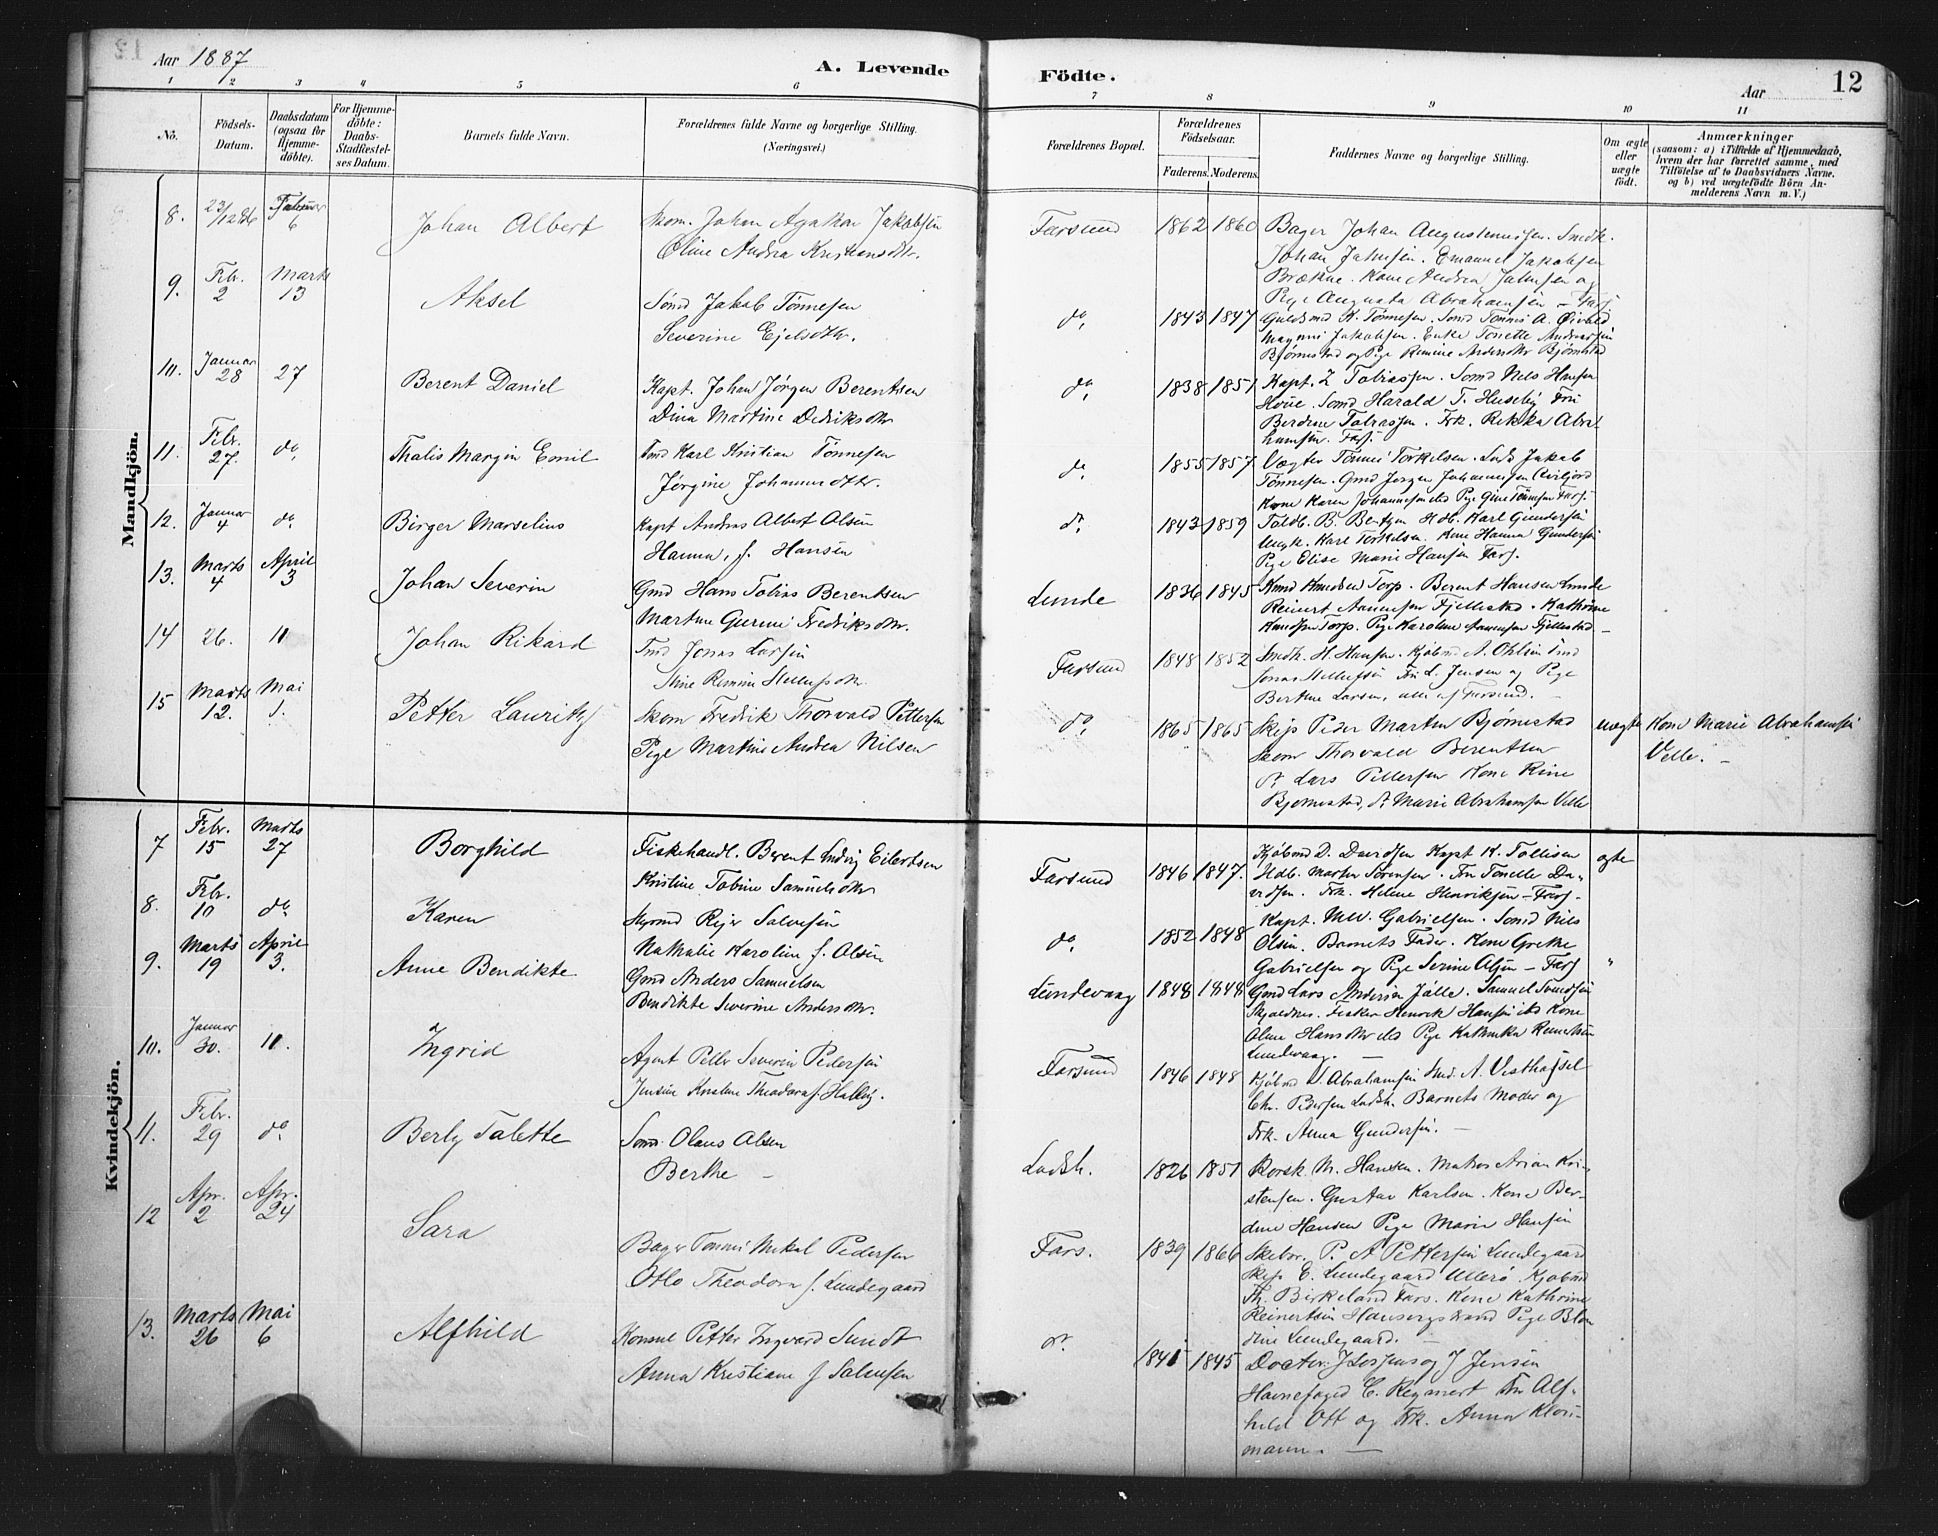 Aar 1887
A. Levende Födte.
Aar 12
1 2 3 4 5 6 7 8 9 10 11
No.
Födsels-Datum.
Daabsdatum (ogsaa for Hjemme-döbte).
For Hjemme-döbte: Daabs-Stadfæstel-ses Datum.
Barnets fulde Navn.
Forældrenes fulde Navne og borgerlige Stilling. (Næringsvei.)
Forældrenes Bopæl.
Forældrenes Födselsaar.
Faderens. Moderens.
Faddernes Navne og borgerlige Stilling.
Om ægte eller uægte födt.
Anmærkninger
(saasom: a) i Tilfælde af Hjemmedaab,
hvem der har forrettet samme, med
Tilföielse af to Daabsvidners Navne,
og b) ved uægtefödte Börn An-
melderens Navn m. V.)
Mandkjön.
8. 23/12 86 6 Johan Albert
Johan Agathon Jakobsen
Oline Andrea Kristensdtr.
Farsund 1862 1860
Bager Johan Smedk.
Johan Emanuel Jakobsen
Kone Andrea og
Pige Augusta Abrahamsen – Fars
9. Febr. 2 Marts 13 Aksel
Sömd Jakob Tönnesen
Severine Ejelsdtr.
do. 1843 1847
Guldsmd K. Tönnesen. Sömd Tönnes A. Öivold
Magnus Jakobsen. Enke Tonette Andreassen
Björnestad og Pige Remine Andersdtr Björnestad
10. Januar 28 27 Berent Daniel
Kapt. Johan Jörgen Berentsen
Dina Martine Didriksdtr
do. 1838 1851
Kapt. Z Tobiassen. Sömd Nils Hansen
Hviie. Sömd Harald T. Huseby Fru
Berdine Tobiassen. Frk. Rikka Abra-
hamsen. Fars.
11. Febr. 27. do. Thalis Margin Emil
Tmd Karl Kristian Tönnesen
Jörgine Johannesdtr.
do 1855 1857
Vægter Tönnes Torkelsen. Lods Jakob
Tönnesen. Gmd Jörgen Johannesen
Kone Karen Johannesen Pige Gine Tönnesen Fars.
12. Januar 4 do. Birger Marselius
Kapt Andras Albert Olsen
Hanna, f. Hansen
do. 1843 1859
Toldb. B. Bentzen Hdb. Karl Gundersen
Ungk. Karl Torkelsen. Kone Hanna Gundersen
Pige Elise Marie Hansen Fars.
13. Marts 4 April 3 Johan Severin
Gmd Hans Tobias Berentsen
Martine Gurine Fredriksdtr.
Lunde 1836 1845
Knud Knudsen Torp. Berent Hansen Lunde
Reinert Aanensen Fjellestad. Kathrine
Knudsen Torp. Pige Karoline Aanensen Fjellestad –
14 26. 11 Johan Rikard
Tmd Jonas Larsen
Stine Remine
Farsund 1848 1852
Smedk. H. Hansen. Kjöbmd A. Ohlsen Tmd
Jonas Fru L. Jensen og Pige
Berthe Larsen, alle af Farsund. –
15 Marts 12. Mai 1. Petter Lauritz
Skom Fredrik Thorvald Pettersen
Pige Martine Andrea Nilsen
do. 1865 1865
Skip Peder Martin Björnestad
Skom Thorvald Berentsen
do Lars Pettersen Kone Rine
Bjornestad, do Marie Abrahamsen Velle
uægte Kone Marie Abrahamsen
Velle. –
Kvindekjön.
7 Febr. 15 Marts 27 Borghild
Fiskehandl. Berent Ludvig Eilertsen
Kristine Tobine Samuelsdtr
Farsund 1846 1847.
Kjöbmd D. Davidsen Kapt K. Tollisen
Hdb. Marten Sörensen. Fru Tonette Da-
vidsen. Frk. Helene Henriksen – Fars.
ægte
8. Febr. 10 do. Karen
Styrmd Rejer Salvesen
Nathalie Karoline f. Olsen
do. 1852 1848
Kapt. Gabrielsen. Sömd Nils
Olsen. Barnets Fader. Kone Grethe
Gabrielsen og Pige Serine Olsen – Fars
"
9. Marts 19 April 3. Anne Bendikte
Gmd Anders Samuelsen
Bendikte Severine Andersdtr.
Lundevaag 1848 1848
Gmd Lars Andersen Jölle. Samuel Svendsen
Skjoldnes. Fisker Henrik Hansen Kone
Oline Hansdtr Pige Kathinka
Lundevaag. –
10. Januar 30. 11. Ingrid
Agent Petter Severin Pedersen
Jensine Kristine Theodora f. Helvig.
Farsund 1846 1848
Kjöbmd S. Abrahamsen Smd. A. Vesthassel
Chr. Pedersen Ladsh. Barnets Moder og
Frk. Anna Gundersen. –
11. Febr. 29 do. Berly Talette
Sömd. Olaus Olsen
Berthe –
Ladsh. 1826 1851
Korsk M. Hansen. Matros Arian Kri-
stensen. Gustav Karlsen. Kone Ber-
dine Hansen Pige Marie Hansen
12 Apr. 2 Apr. 24 Sara
Bager Tönnes Mikal Pedersen
Otto Theodora f. Lundegaard
Fars. 1839 1866
Skibsr. P. A Pettersen Lundegaard
Skip E. Lundegaard Ullerö. Kjöbmd
Th. Birkeland Fars. Kone Kathrine
Reinertsen Haugestrand Pige Blon
dine Lundegaard. –
13. Marts 26 Mai 6 Alfhild
Konsul Petter Ingvard Sundt
Anna Kristiane f Salvesen
do. 1841 1845
Doctor J Jensen
Havnefoged C. Reymert Fru Alf-
hild Ott og Frk. Anna Klou-
mann. –